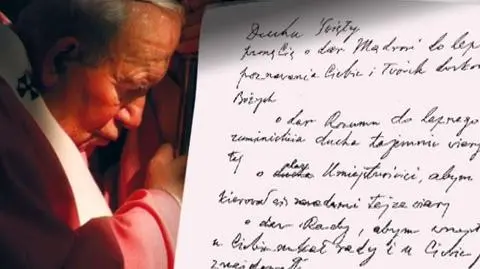 Duchu Święty
proszę Cię o dar Mądrości do lep
poznawania Ciebie i Twoich dosko
Bożych
o dar Rozumu do lepszego
zrozumienia ducha tajemnic wiary
ty
o dar Umiejętności, abym
kierował się zasadami tejże wiary
o dar Rady, abym wszyst
u Ciebie szukał rady i u Ciebie